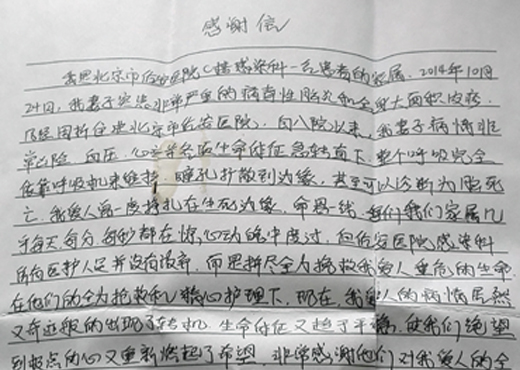 感谢信
我是北京市佑安医院C楼感染科一名患者的家属，2014年10月
24日，我妻子突患非常严重的病毒性脑炎和全身大面积皮疹，
几经周折住进北京市佑安医院，自入院以来，我妻子病情非
常危险，血压、心率等各项生命体征急转直下，整个呼吸完全
依靠呼吸机来维持，瞳孔扩散到边缘，甚至可以诊断为脑死
亡，我爱人曾一度挣扎在生死边缘，命悬一线，我们家属几
乎每天每分每秒都在惊心动魄中度过，但佑安医院感染科
所有医护人员并没有放弃，而是拼尽全力抢救我爱人垂危的生命
在他们的全力抢救和精心护理下，现在，我爱人的病情居然
又奇迹般的出现了转机，生命体征又趋于平稳，使我们绝望
到极点的心又重新燃起了希望，非常感谢他们对我爱人的全